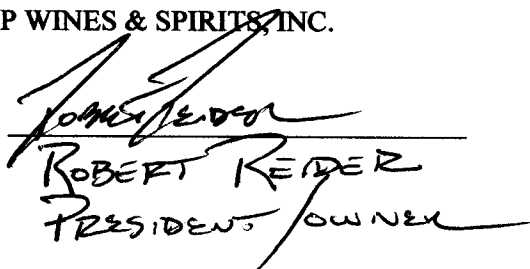 P WINES & SPIRITS, INC.
Robert Reider
ROBERT REIDER
PRESIDENT / OWNER